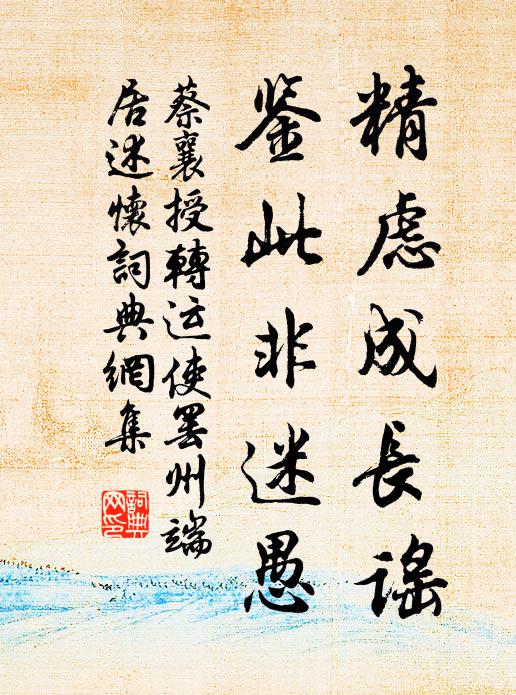 精慮成長謠
鉴此非迷愚
蔡襄授轉运使罢州端
居述懷詞典網集
詞典
网印